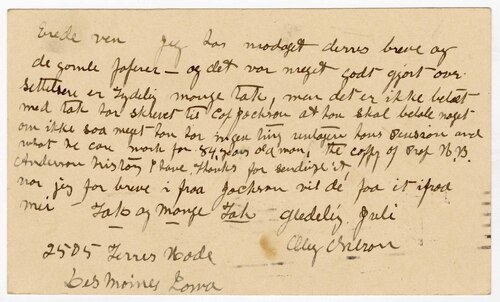 Erede ven Jeg har modaget derres breve og
de gamle papirer — og det var meget godt gjort over
settelsen er tydelig mange tak, men det er ikke betalt
med tak har skrevet til Cap Jackson at han skal betale noget
om ikke saa meget han har ingen ting unntagen hans Pension and
what he can work for 84 years old man, the copy of Prof R.B.
Anderson history I have thanks for sending it,
nor jeg for breve i fraa Jackson vil de faa it ifraa
mei Tak og mange Tak gledelig Juli
Oley Nelson
2505 Terres Rode
Des Moines Iowa